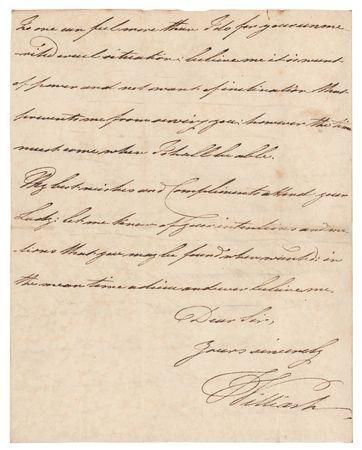 no one can feel more than I do for your unme
rited cruel situation; believe me it is want
of power and not want of inclination that
prevents me from serving you; however the time
must come when I shall be able.
My best wishes and Compliments attend your
Lady; let me know of your intentions and mo
tions that you may be found when wanted: in
the mean time adieu and ever believe me,
Dear Sir,
Yours sincerely
William